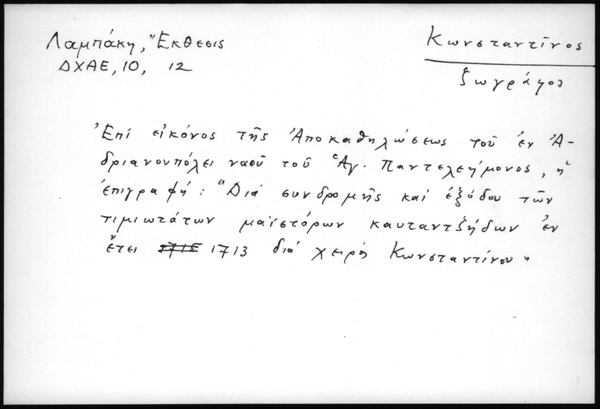 Λαμπάκη, Ἔκθεσις
ΔΧΑΕ, 10, 12
Κωνσταντῖνος
ζωγράφος
Ἐπί εἰκόνος τῆς Ἀποκαθηλώσεως τοῦ ἐν Ἀ-
δριανουπόλει ναοῦ τοῦ Ἁγ. Παντελεήμονος, ἡ
ἐπιγραφή: "Διά συνδρομῆς καί ἐξόδου τῶν
τιμιωτάτων μαϊστόρων καυταντζήδων ἐν
ἔτει 1713 διά χειρός Κωνσταντίνου"